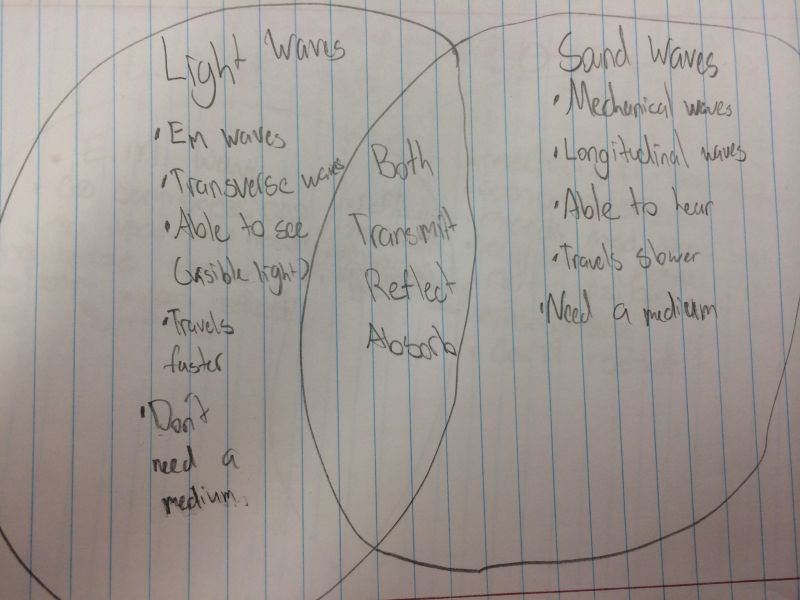 Light Waves
• Em waves
• Transverse waves
• Able to see
(visible light)
• Travels
faster
• Don't
need a
medium.
Both
Transmit
Reflect
Absorb
Sound Waves
• Mechanical waves
• Longitudinal waves
• Able to hear
• Travels slower
• Need a medium